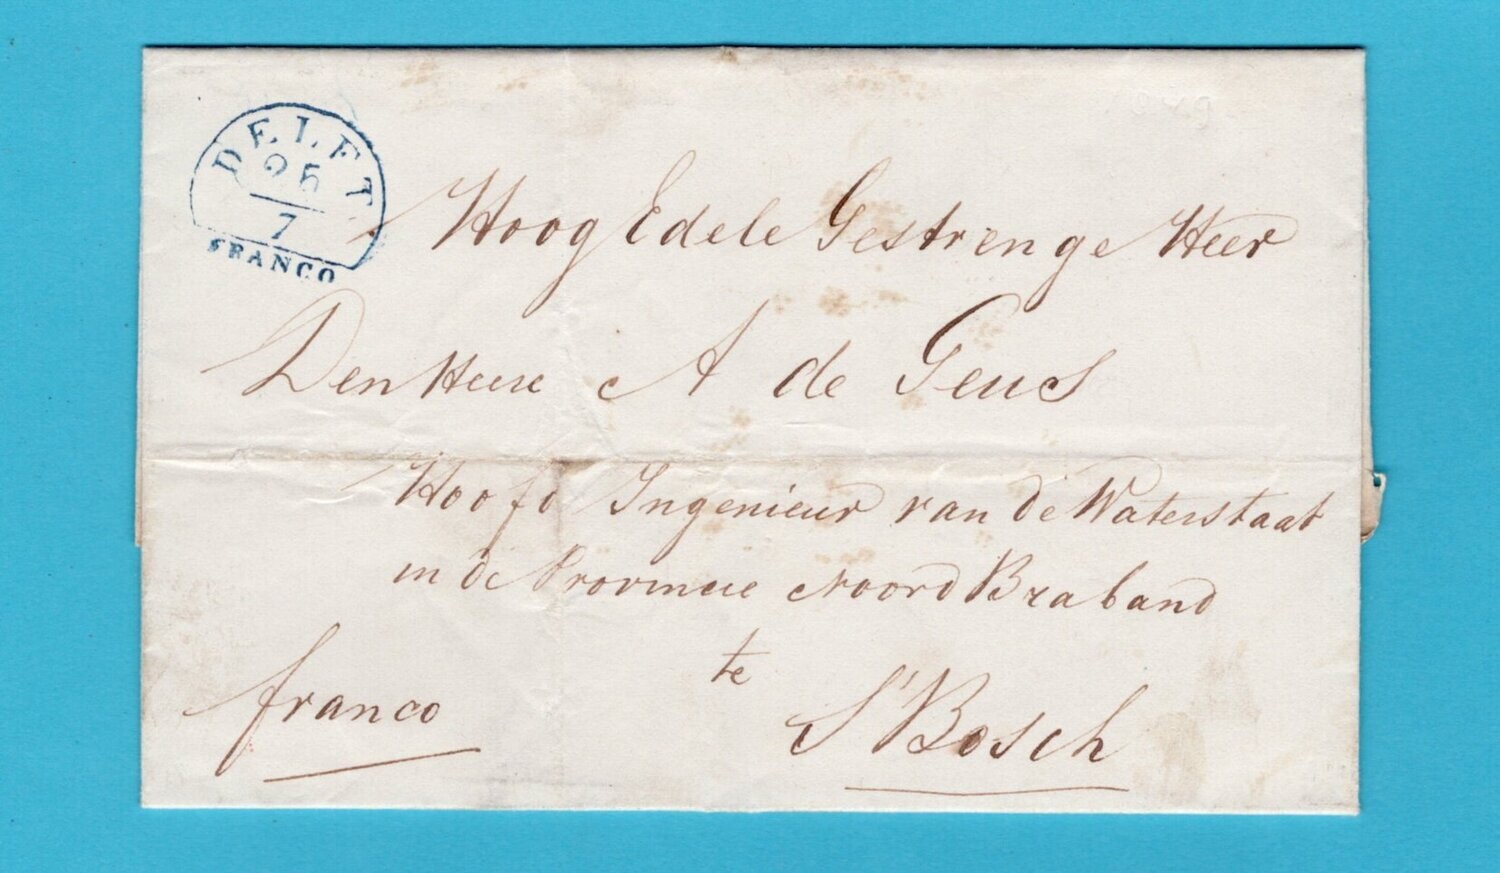 DELFT
25
7
FRANCO
Hoog Edele Gestrenge Heer
Den Heere A de Geus
Hoofd Ingenieur van de Waterstaat
in de Provincie Noord Braband
te
franco
S'Bosch